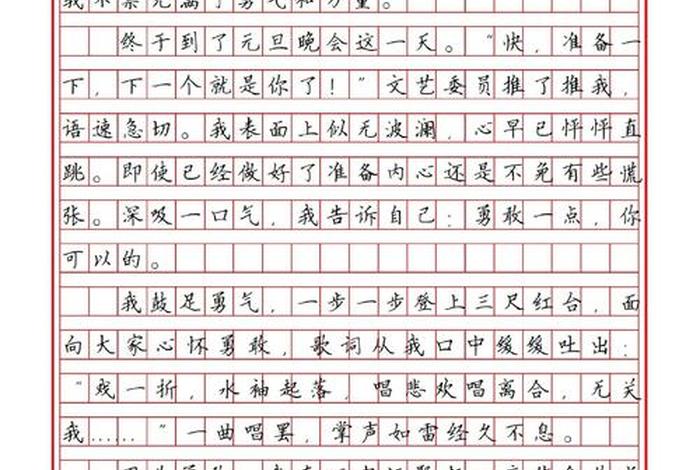 终于到了元旦晚会这一天。“快，准备一
下，下一个就是你了！”文艺委员推了推我，
语速急切。我表面上似无波澜，心早已怦怦直
跳。即使已经做好了准备内心还是不免有些慌
张。深吸一口气，我告诉自己：勇敢一点，你
可以的。
我鼓足勇气，一步一步登上三尺红台，面
向大家心怀勇敢，歌词从我口中缓缓吐出：
“戏一折，水袖起落，唱悲欢唱离合，无关
我……”一曲唱罢，掌声如雷经久不息。